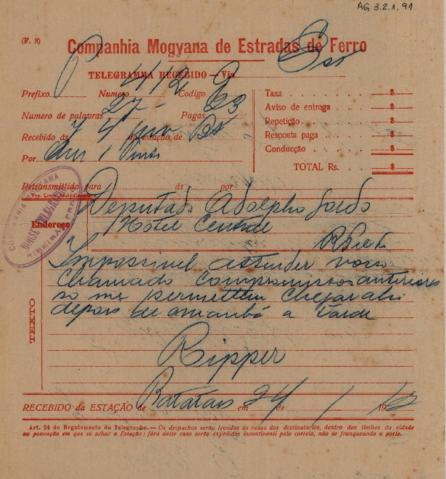 AG 3.2.1.91
(F. 8)
Companhia Mogyana de Estradas de Ferro
TELEGRAMMA RECEBIDO — Via
Prefixo P Numero 112 Codigo
Numero de palavras 27 Pagas 23
Recebido da estação de
Por
Taxa $
Aviso de entrega $
Repetição $
Resposta paga $
Conducção $
TOTAL Rs. $
Retransmittido para ás por
Endereço
Deputado Adolpho Gordo
Hotel Central
R Preto
TEXTO
Impossivel attender vosso
chamado compromissos anteriores
so me permettem chegar ahi
depois de amanhã a tarde
Ripper
RECEBIDO DA ESTAÇÃO DE Batataes em 24 de / 19
Art. 24 do Regulamento do Telegrapho. — Os despachos serão levados ás casas dos destinatarios, dentro dos limites da cidade
ou povoação em que se achar a Estação; fóra deste caso serão expedidos incontinenti pelo correio, não se franqueando o porte.